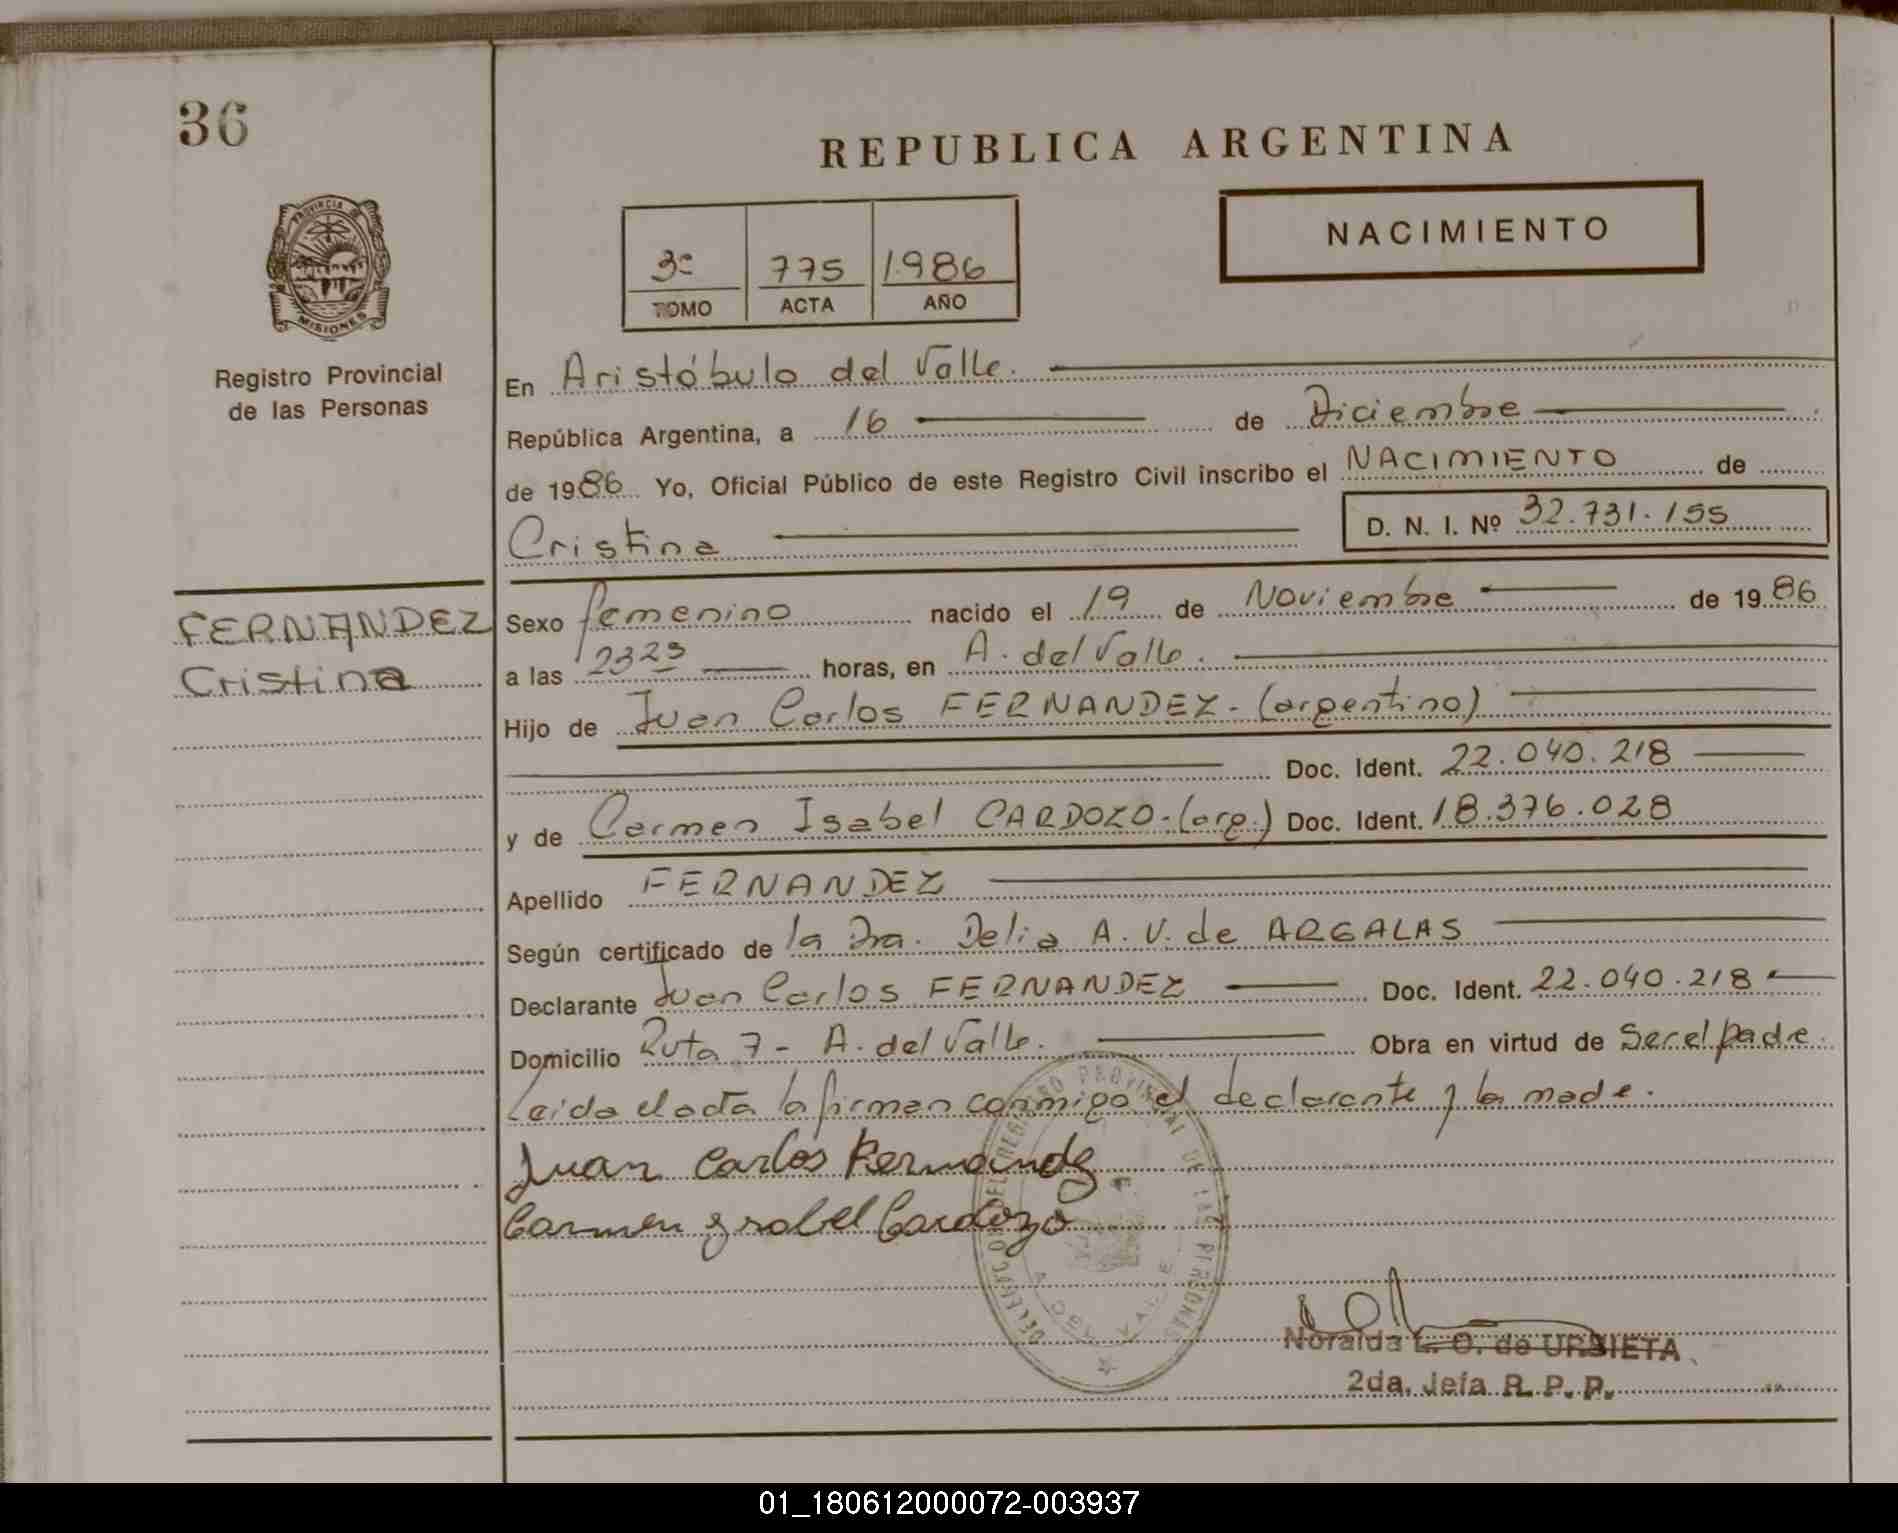 36
REPUBLICA ARGENTINA
NACIMIENTO
PROVINCIA DE
MISIONES
3º 775 1986
TOMO ACTA AÑO
Registro Provincial
de las Personas
En Aristóbulo del Valle.
República Argentina, a 16 de Diciembre
de 1986 Yo, Oficial Público de este Registro Civil inscribo el NACIMIENTO de
Cristina D. N. I. Nº 32.731.155
FERNANDEZ
Cristina
Sexo femenino nacido el 19 de Noviembre de 1986
a las 2325 horas, en A. del Valle.
Hijo de Juan Carlos FERNANDEZ - (argentino)
Doc. Ident. 22.040.218
y de Carmen Isabel CARDOZO - (arg.) Doc. Ident. 18.376.028
Apellido FERNANDEZ
Según certificado de la Dra. Delia A. V. de ARGALAS
Declarante Juan Carlos FERNANDEZ Doc. Ident. 22.040.218
Domicilio Ruta 7 - A. del Valle. Obra en virtud de Ser el padre.
Leida el acta la firman conmigo el declarante y la madre.
Juan Carlos Fernandez
Carmen Ysabel Cardozo
REGISTRO PROVINCIAL DE LAS PERSONAS
Noraida L. O. de URBIETA
2da. Jefa R. P. P.
01_180612000072-003937